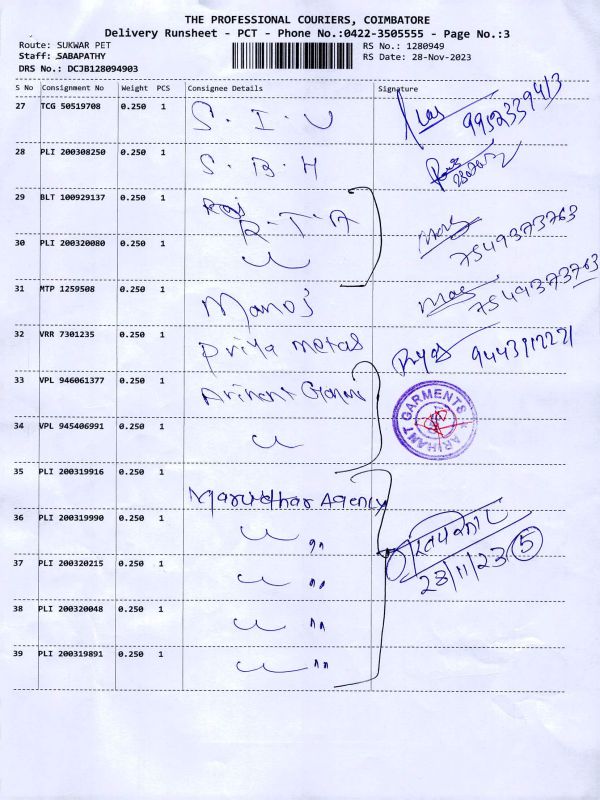 THE PROFESSIONAL COURIERS, COIMBATORE
Delivery Runsheet - PCT - Phone No.:0422-3505555 - Page No.:3
Route: SUKWAR PET RS No.: 1280949
Staff: SABAPATHY RS Date: 28-Nov-2023
DRS No.: DCJB128094903
S No Consignment No Weight PCS Consignee Details Signature
27 TCG 50519708 0.250 1 S. I. U
28 PLI 200308250 0.250 1 S. B. H
29 BLT 100929137 0.250 1 R. T. A
30 PLI 200320080 0.250 1 7549373763
31 MTP 1259508 0.250 1 Manoj 7549373763
32 VRR 7301235 0.250 1 Priya metas
33 VPL 946061377 0.250 1 Arihant
ARIHANT GARMENTS
34 VPL 945406991 0.250 1
35 PLI 200319916 0.250 1 Marudhar Agency
36 PLI 200319990 0.250 1 "
37 PLI 200320215 0.250 1 " 23/11/23 5
38 PLI 200320048 0.250 1 "
39 PLI 200319891 0.250 1 "